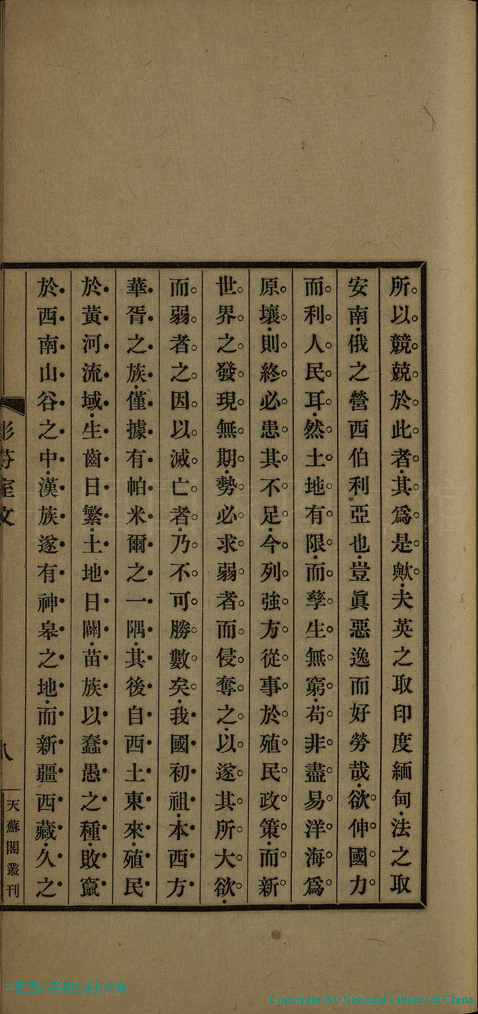 所以競兢於此者其爲是歟夫英之取印度緬甸法之取
安南俄之營西伯利亞也豈眞惡逸而好勞哉欲伸國力
而利人民耳然土地有限而孳生無窮苟非盡易洋海爲
原壤則終必患其不足今列強方從事於殖民政策而新
世界之發現無期勢必求弱者而侵奪之以遂其所大欲
而弱者之因以滅亡者乃不可勝數矣我國初祖本西方
華胥之族僅據有帕米爾之一隅其後自西土東來殖民
於黃河流域生齒日繁土地日闢苗族以蠢愚之種敗竄
於西南山谷之中漢族遂有神皋之地而新疆西藏久之
室文
八
天蘇閣叢刊
Copyright By National Library of China